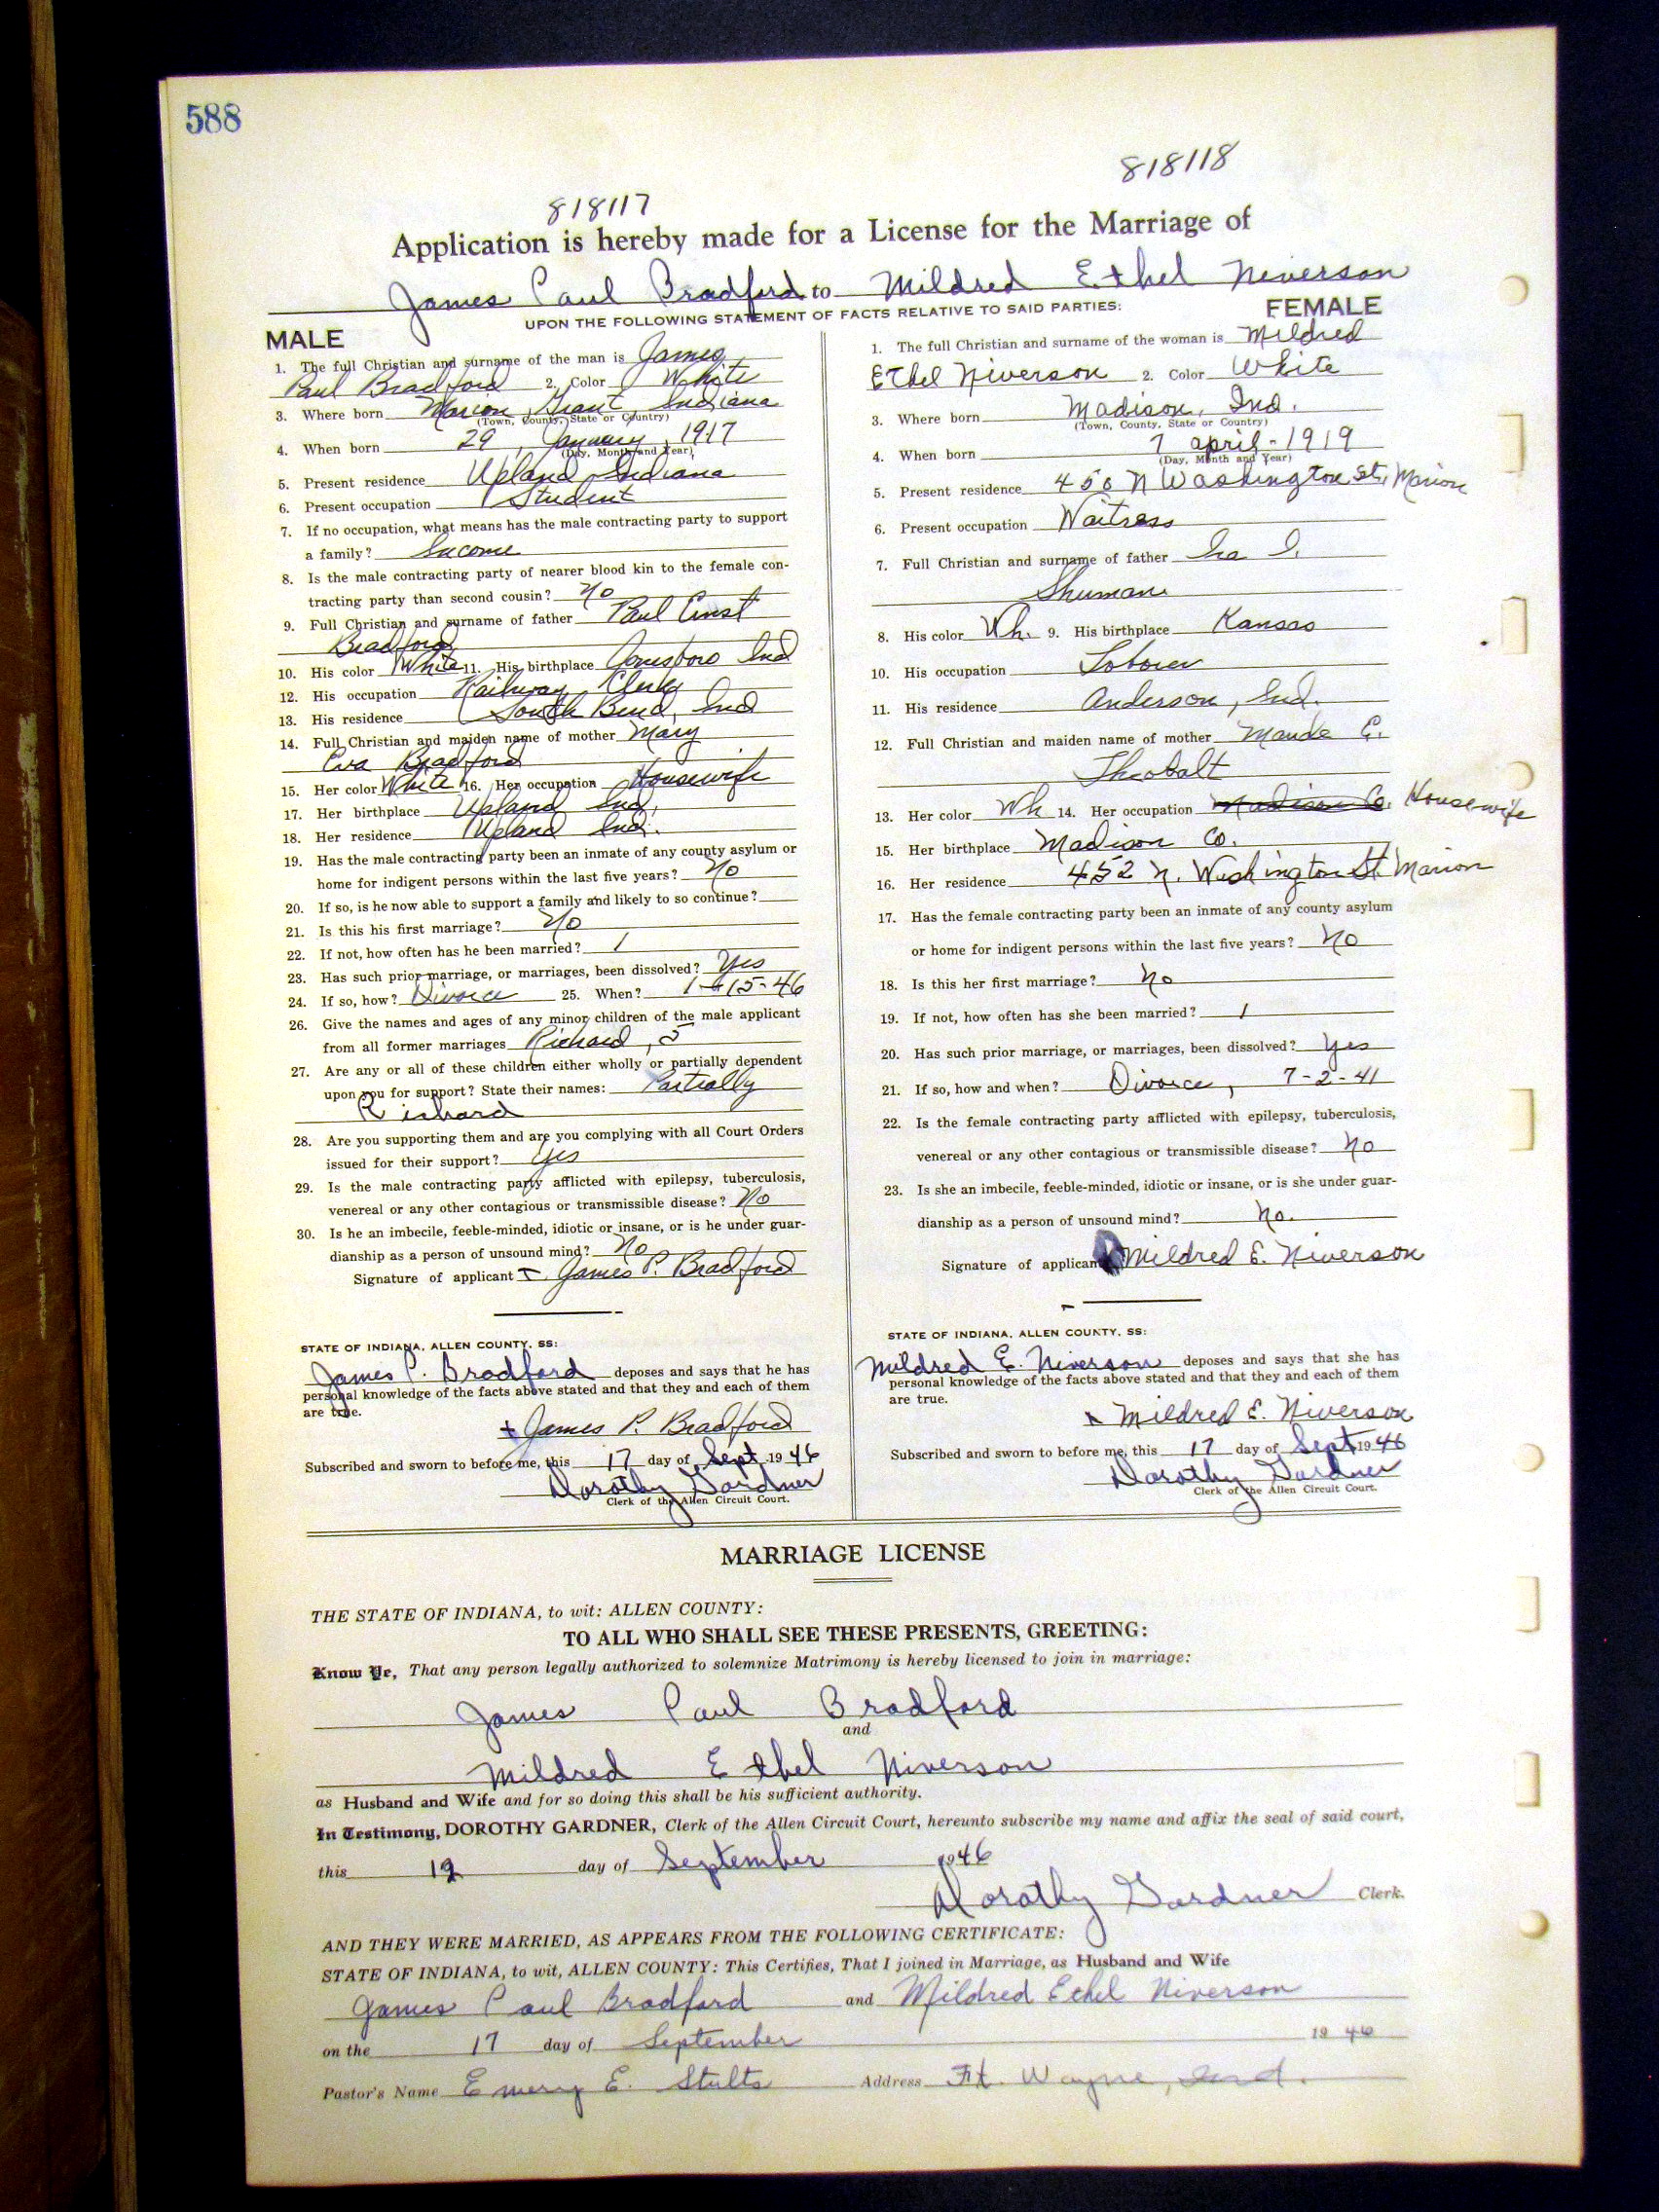 588
818118
818117
Application is hereby made for a License for the Marriage of
James Paul Bradford to Mildred Ethel Niverson
UPON THE FOLLOWING STATEMENT OF FACTS RELATIVE TO SAID PARTIES:
MALE
1. The full Christian and surname of the man is James
Paul Bradford 2. Color White
3. Where born Marion, Grant Indiana
(Town, County, State or Country)
4. When born 29, January, 1917
(Day, Month and Year)
5. Present residence Upland Indiana
6. Present occupation Student
7. If no occupation, what means has the male contracting party to support
a family? Income
8. Is the male contracting party of nearer blood kin to the female con-
tracting party than second cousin? No
9. Full Christian and surname of father Paul Ernst
Bradford
10. His color White 11. His birthplace Jonesboro Ind
12. His occupation Railway Clerk
13. His residence South Bend, Ind
14. Full Christian and maiden name of mother Mary
Eva Bradford
15. Her color White 16. Her occupation Housewife
17. Her birthplace Upland Ind,
18. Her residence Upland Ind.
19. Has the male contracting party been an inmate of any county asylum or
home for indigent persons within the last five years? No
20. If so, is he now able to support a family and likely to so continue?
21. Is this his first marriage? No
22. If not, how often has he been married? 1
23. Has such prior marriage, or marriages, been dissolved? Yes
24. If so, how? Divorce 25. When? 1-15-46
26. Give the names and ages of any minor children of the male applicant
from all former marriages Richard, 5
27. Are any or all of these children either wholly or partially dependent
upon you for support? State their names: Partially
Richard
28. Are you supporting them and are you complying with all Court Orders
issued for their support? Yes
29. Is the male contracting party afflicted with epilepsy, tuberculosis,
venereal or any other contagious or transmissible disease? No
30. Is he an imbecile, feeble-minded, idiotic or insane, or is he under guar-
dianship as a person of unsound mind? No
Signature of applicant James P. Bradford
STATE OF INDIANA, ALLEN COUNTY, SS:
James P. Bradford deposes and says that he has
personal knowledge of the facts above stated and that they and each of them
are true.
+ James P. Bradford
Subscribed and sworn to before me, this 17 day of Sept 1946
Dorothy Gardner
Clerk of the Allen Circuit Court.
FEMALE
1. The full Christian and surname of the woman is Mildred
Ethel Niverson 2. Color White
3. Where born Madison, Ind.
(Town, County, State or Country)
4. When born 7 april-1919
(Day, Month and Year)
5. Present residence N Washington St, Marion
6. Present occupation Waitress
7. Full Christian and surname of father Ira I.
Shuman
8. His color Wh. 9. His birthplace Kansas
10. His occupation Laborer
11. His residence Anderson, Ind.
12. Full Christian and maiden name of mother Maude E.
Theobalt
13. Her color Wh 14. Her occupation Madison Co. Housewife
15. Her birthplace Madison Co.
16. Her residence 452 N. Washington St. Marion
17. Has the female contracting party been an inmate of any county asylum
or home for indigent persons within the last five years? No
18. Is this her first marriage? No
19. If not, how often has she been married? 1
20. Has such prior marriage, or marriages, been dissolved? Yes
21. If so, how and when? Divorce, 7-2-41
22. Is the female contracting party afflicted with epilepsy, tuberculosis,
venereal or any other contagious or transmissible disease? No
23. Is she an imbecile, feeble-minded, idiotic or insane, or is she under guar-
dianship as a person of unsound mind? No.
Signature of applicant Mildred E. Niverson
STATE OF INDIANA, ALLEN COUNTY, SS:
Mildred E. Niverson deposes and says that she has
personal knowledge of the facts above stated and that they and each of them
are true.
x Mildred E. Niverson
Subscribed and sworn to before me, this 17 day of Sept 1946
Dorothy Gardner
Clerk of the Allen Circuit Court.
MARRIAGE LICENSE
THE STATE OF INDIANA, to wit: ALLEN COUNTY:
TO ALL WHO SHALL SEE THESE PRESENTS, GREETING:
Know Ye, That any person legally authorized to solemnize Matrimony is hereby licensed to join in marriage:
James Paul Bradford
and
Mildred Ethel Niverson
as Husband and Wife and for so doing this shall be his sufficient authority.
In Testimony, DOROTHY GARDNER, Clerk of the Allen Circuit Court, hereunto subscribe my name and affix the seal of said court,
this day of September 1946
Dorothy Gardner Clerk.
AND THEY WERE MARRIED, AS APPEARS FROM THE FOLLOWING CERTIFICATE:
STATE OF INDIANA, to wit, ALLEN COUNTY: This Certifies, That I joined in Marriage, as Husband and Wife
James Paul Bradford and Mildred Ethel Niverson
on the 17 day of September 1946
Pastor's Name Emery E. Stults Address Ft. Wayne, Ind.